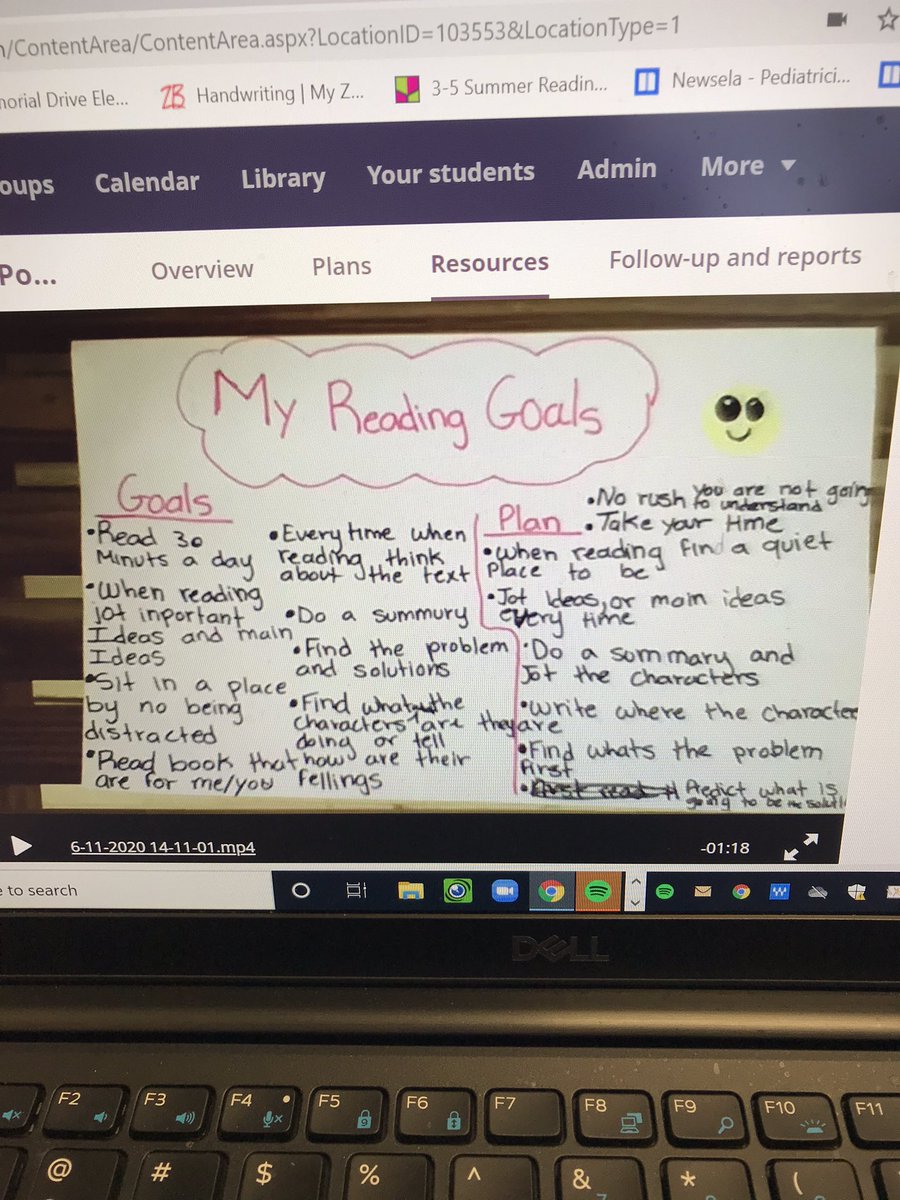 n/ContentArea/ContentArea.aspx?LocationID=103553&LocationType=1
morial Drive Ele...
ZB Handwriting | My Z...
3-5 Summer Readin...
Newsela - Pediatrici...
oups Calendar Library Your students Admin More
Po... Overview Plans Resources Follow-up and reports
My Reading Goals
Goals
•Read 30
Minuts a day
•When reading
jot inportant
Ideas and main
Ideas
•Sit in a place
by no being
distracted
•Read book that
are for me/you
•Everytime when
reading think
about the text
•Do a summury
•Find the problem
and solutions
•Find what the
characters are
doing or tell
how are their
fellings
Plan
•No rush you are not going
to understand
•Take your time
•When reading find a quiet
place to be
•Jot Ideas, or main ideas
every time
•Do a summary and
Jot the characters
•Write where the character
they are
•Find whats the problem
first
•Predict what is
going to be the soluti
6-11-2020 14-11-01.mp4 -01:18
e to search
DELL
F2 F3 F4 F5 F6 F7 F8 F9 F10 F11
@ # $ % ^ & * (
7